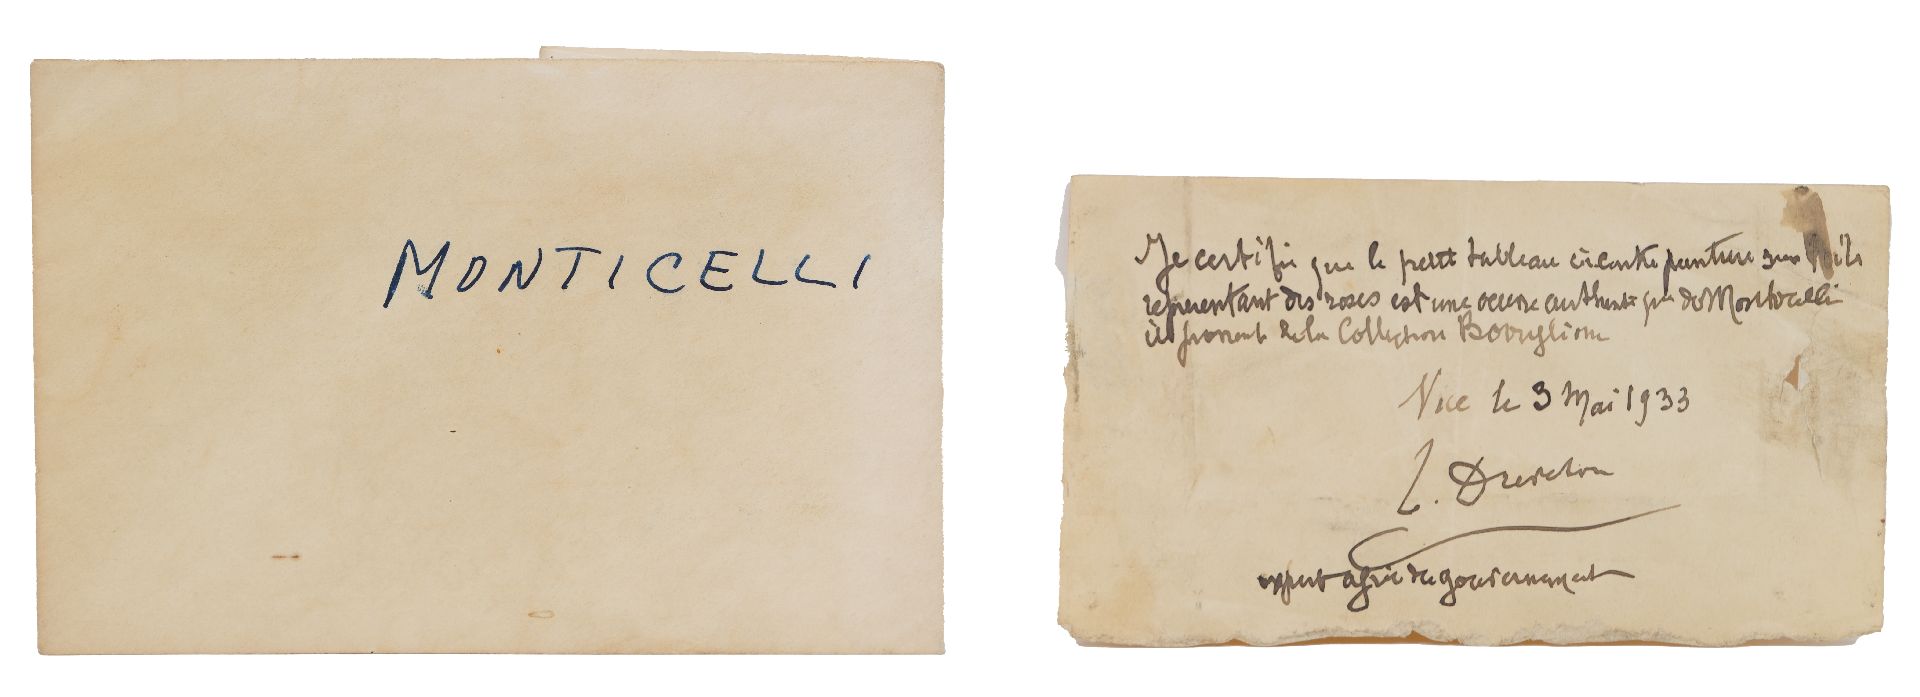 MONTICELLI
Je certifie que le petit tableau ci contre peinture sur toile
representant des roses est une oeuvre authentique de Monticelli
il provient de la Collection
Nice le 3 Mai 1933
expert agréé du gouvernement